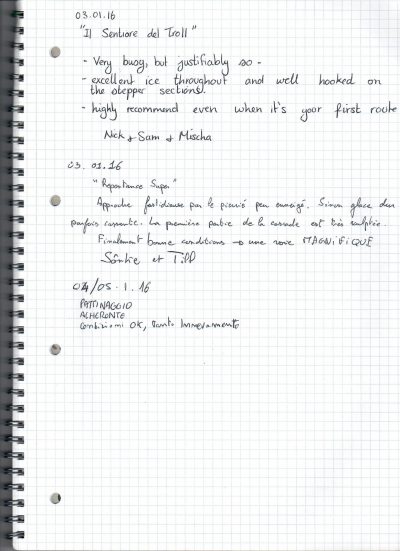 03.01.16
"Il Sentiero del Troll"
- Very busy, but justifiably so -
- excellent ice throughout and well hooked on
the stepper sections.
- highly recommend even when it's your first route
Nick + Sam + Mischa
03.01.16
"Repentance Super"
Approche fastidieuse par le pierrié peu enneigé. Sinon glace dure
parfois cassante. La première partie de la cascade est très sculptée.
Finalement bonne conditions → une voie MAGNiFiQUE
et Till
04/05.1.16
PATTINAGGIO
ACHERONTE
Condizioni OK,